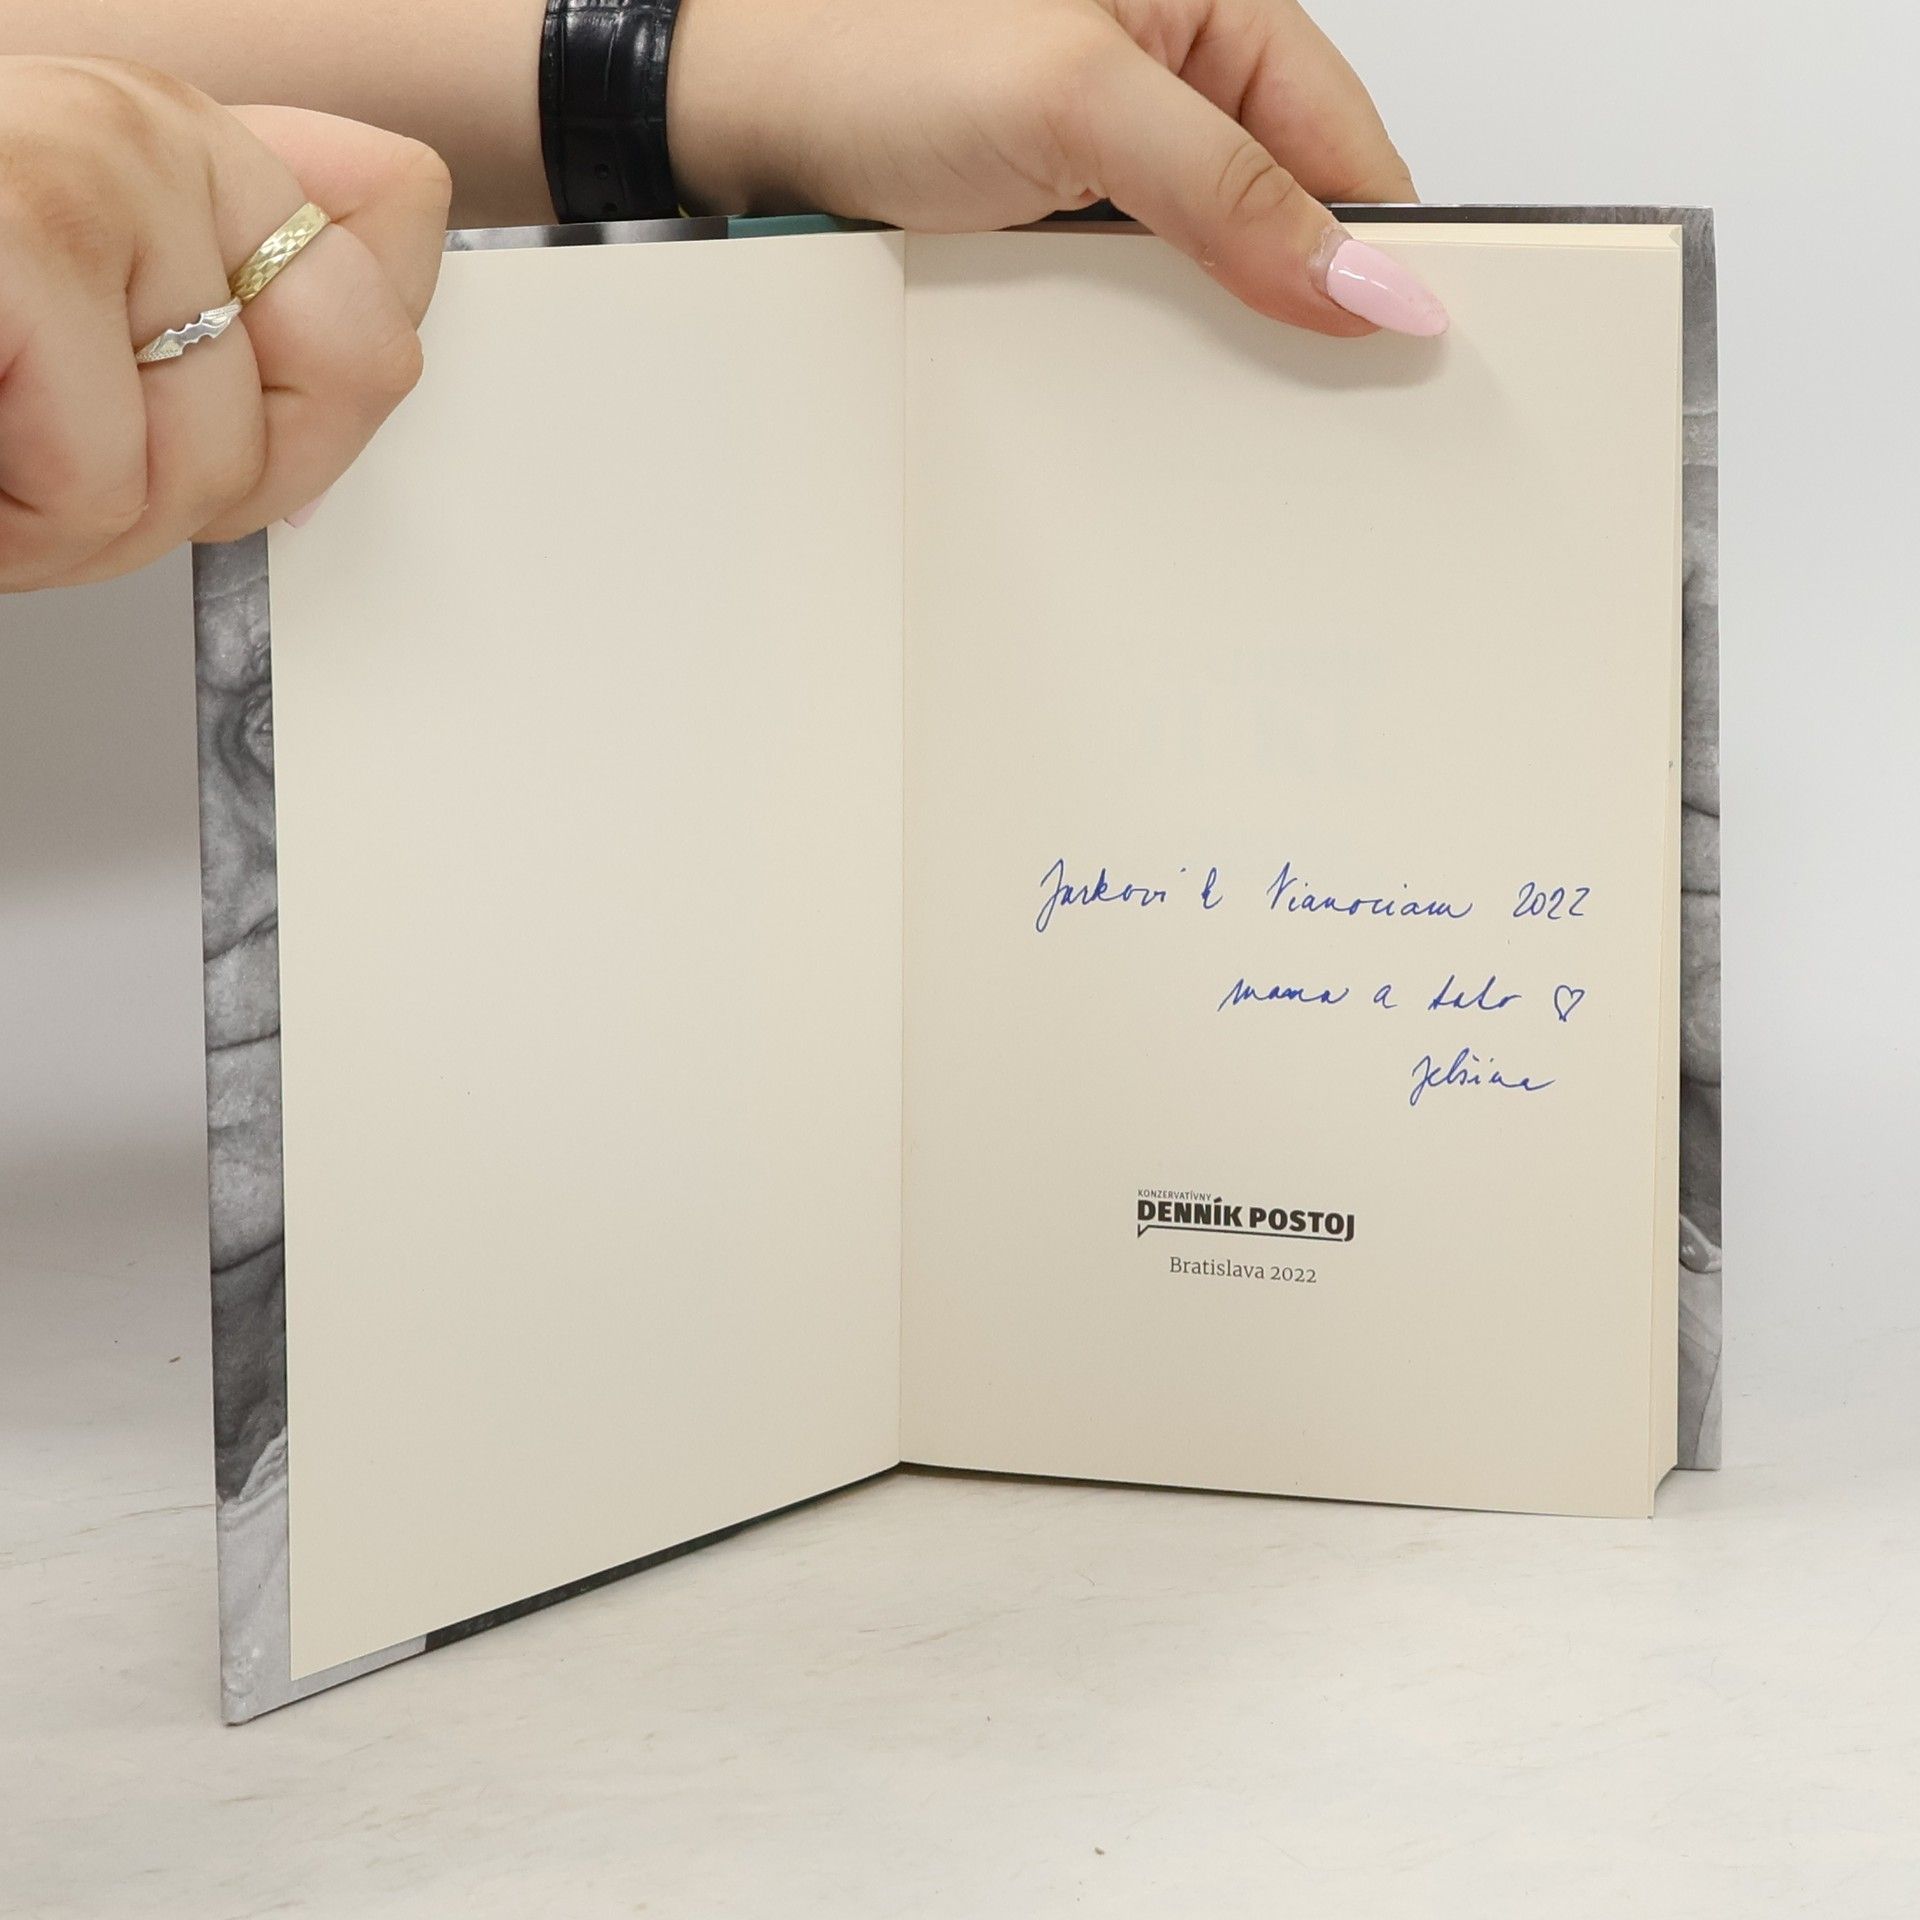 Jurkovi k Vianociam 2022
mama a tato ♡
Jelšina
KONZERVATÍVNY
DENNÍK POSTOJ
Bratislava 2022